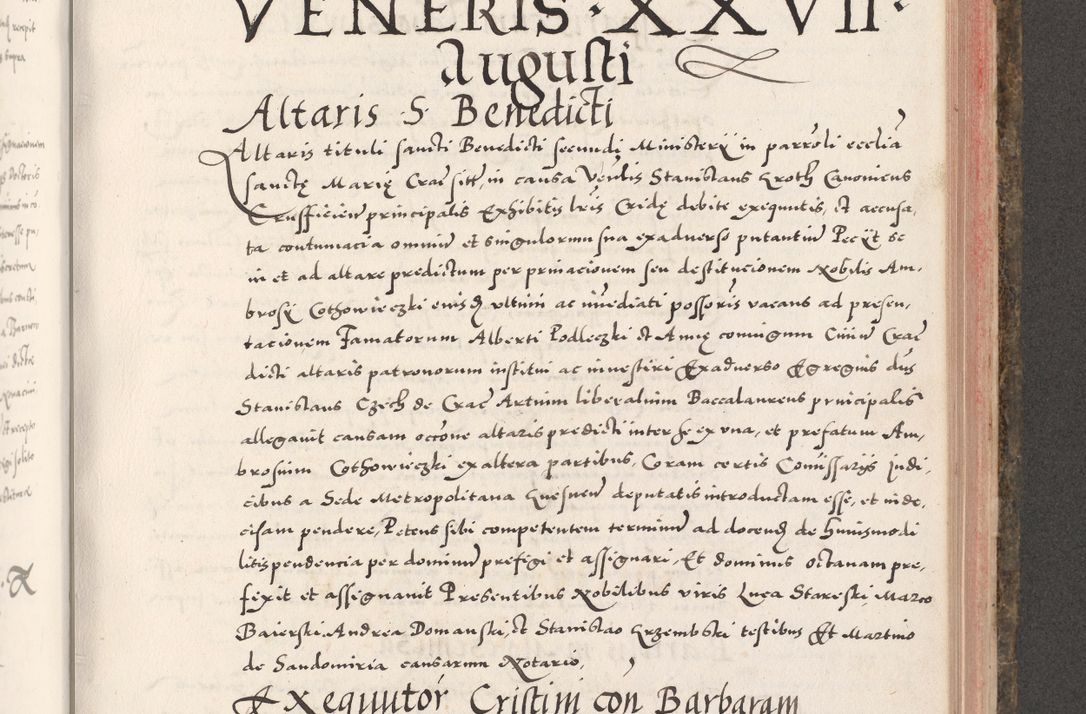 VENERIS · XXVII ·
augusti
Altaris S. Benedicti
Altaris tituli sancti Benedicti secundi Ministerÿ in parroli ecclia
sanctę Marię Crac sitt, in causa Venlis Stanislaus Kroth Canonicus
Crusfficien principalis Exhibitis lris Cridę debite exequutis, et accusa,
ta contumacia omniu et singulorum sua exadverso putantiu Pecÿt se
in et ad altare predictum per privacionem seu destitucionem Nobilis Am,
brosÿ Cothowieczki eius ultimi ac immediati possoris vacans ad presen,
tacionem Famatorum Alberti Podleczki et Annę coniugum Civiu Crac
dicti altaris patronorum institui ac investiri Exadverso Egregius dns
Stanislaus Czech de Crac Artium liberalium Baccalaureus principalis
allegavit causam occone altaris predicti inter se ex una, et prefatum Am,
brosium Cothowieczki ex altera partibus, Coram certis Comissarijs iudi,
cibus a Sede Metropolitana Gnesnen deputatis introductam esse, et inde,
cisam pendere, Petens sibi competentem terminu ad docend de huiusmodi
litispendencia per dominu prefigi et assignari, Et dominus octavam pre,
fixit et assignavit Presentibus Nobilibus viris Luca Stareski, Marco
Baierski, Andrea Domanski, et Stanislao Grzembski testibus Et Martino
de Sandomiria causarum Notario,
Exequutor Cristini con Barbaram